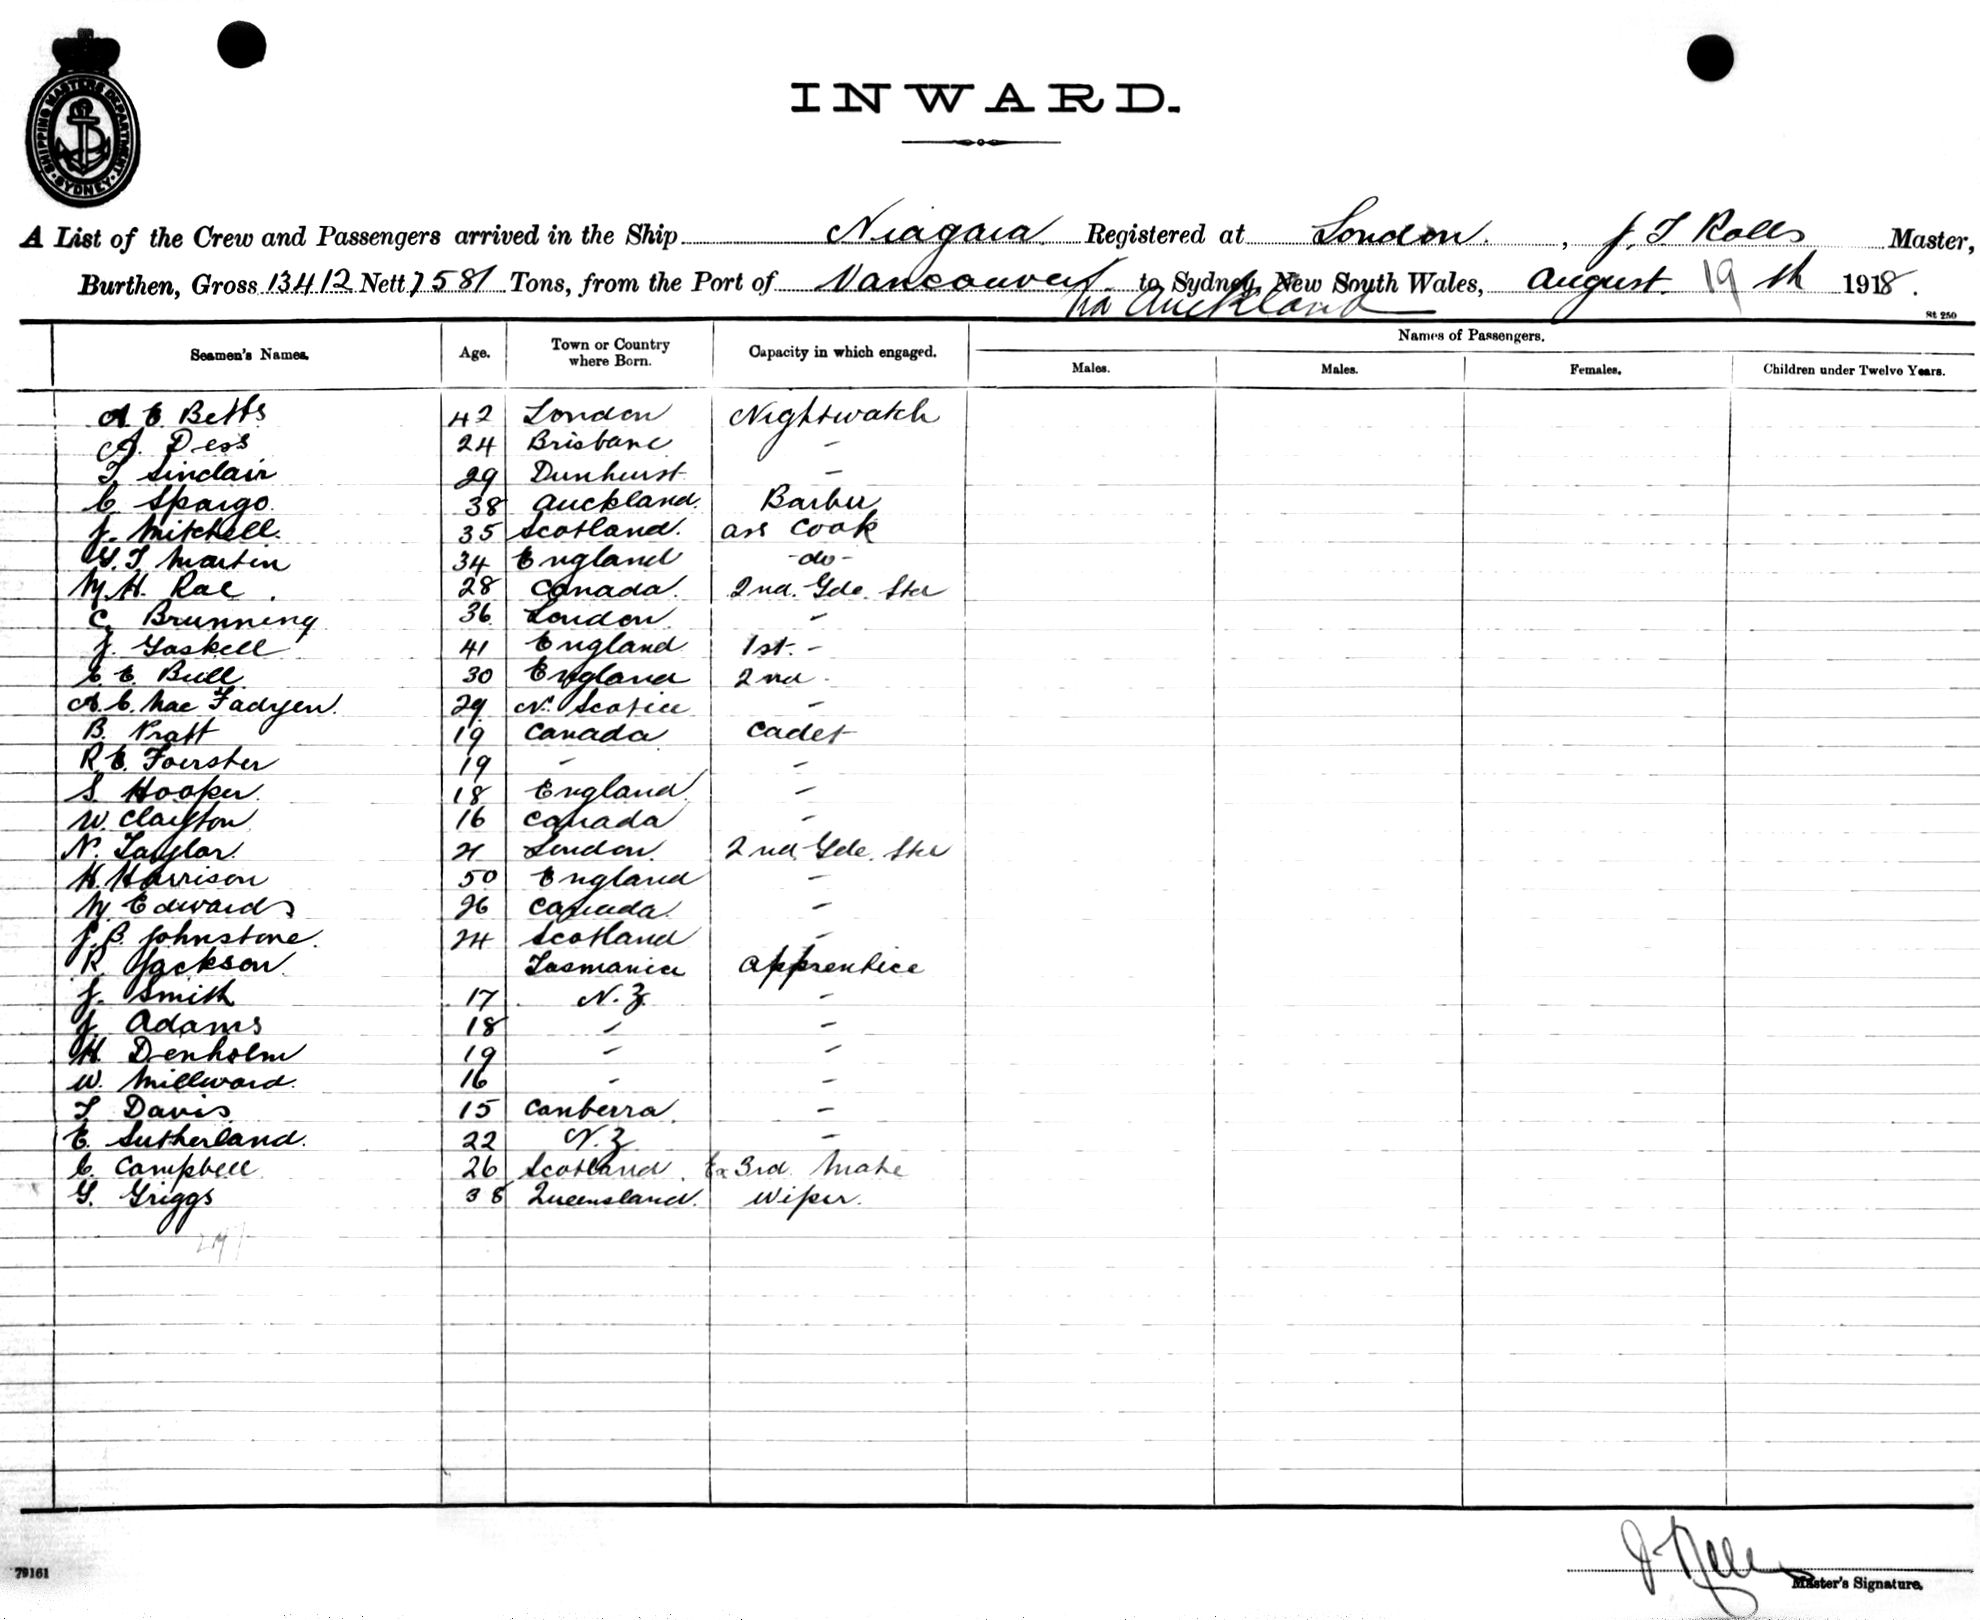 SHIPPING MASTERS DEPARTMENT SYDNEY
INWARD.
A List of the Crew and Passengers arrived in the Ship Niagara Registered at London, J. T Rolls Master,
Burthen, Gross 13412 Nett 7581 Tons, from the Port of Vancouver to Sydney, New South Wales, August 19th 1918.
via Auckland
St 250
Seamen's Names. Age. Town or Country where Born. Capacity in which engaged. Names of Passengers.
Males. Males. Females. Children under Twelve Years.
A E Betts 42 London Nightwatch
A. Dess 24 Brisbane -
T Sinclair 29 Dunhurst -
C Spargo 38 Auckland. Barber
J. Mitchell. 35 Scotland. ass Cook
G. T Martin 34 England -do-
M. H. Rae. 28 Canada. 2nd. Gde. Std
C. Brunning 36 London -
J. Gaskell 41 England 1st. -
C. E. Bull 30 England 2nd -
A. C. MacFadyen. 29 N. Scotia -
B. Pratt 19 Canada Cadet
R E. Foerster 19 - -
S. Hooper. 18 England -
W. Clayton 16 Canada -
N. Taylor. 21 London. 2nd. Gde. Std
H. Harrison 50 England -
M Edwards 26 Canada. -
J. B. Johnstone. 24 Scotland -
R Jackson Tasmania apprentice
J. Smith 17 N. Z. -
J. Adams 18 - -
H. Denholm 19 - -
W. Millward. 16 - -
T Davis 15 Canberra. -
E. Sutherland. 22 N. Z -
C. Campbell 26 Scotland. Ex 3rd. Mate
G. Griggs 38 Queensland. Wiper.
J. Rolls
79161
Master's Signature.